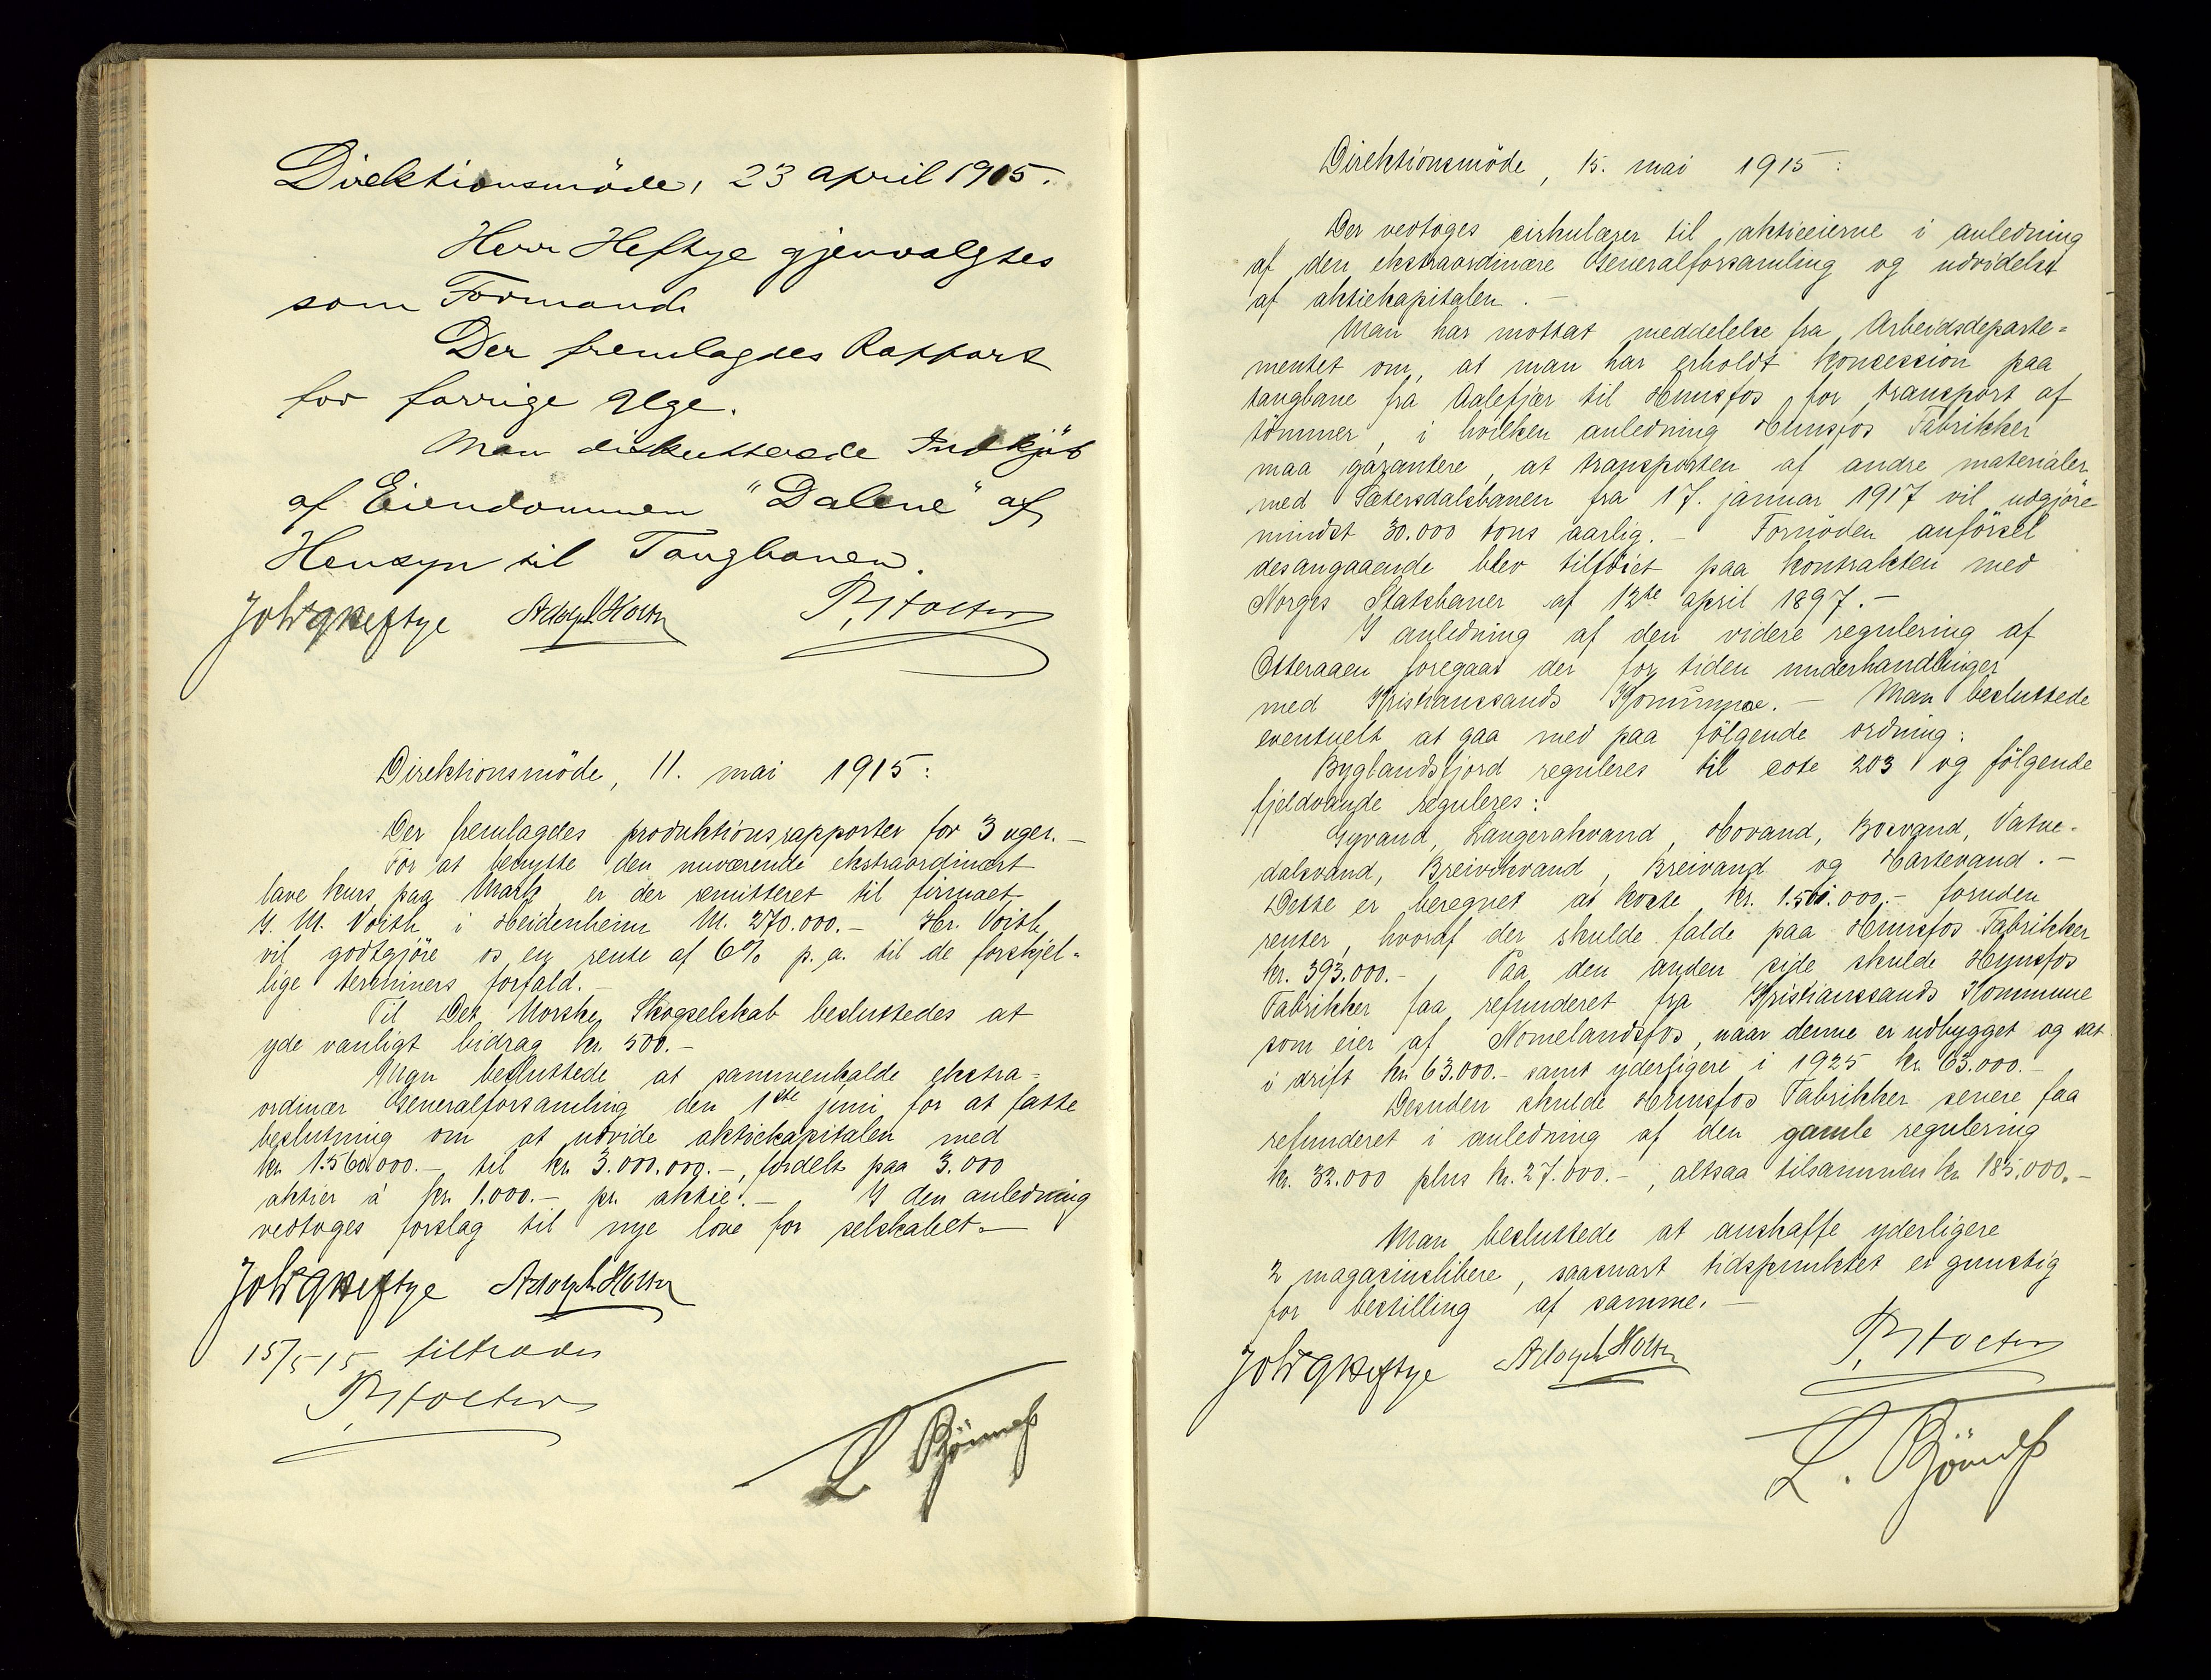 Direktionsmöde, 23 april 1915.
Herr Heftye gjenvalgtes
som Formand.
Der fremlagdes Rapport
for forrige Uge.
Man diskutterede Indkjöb
af Eiendommen "Dalene" af
Hensyn til Taugbanen.
Joh Heftye Adolph Holter P. Holter
Direktionsmöde, 11. mai 1915:
Der fremlagdes produktionsrapporter for 3 uger. –
For at benytte den nuværende ekstraordinært
lave kurs paa Mark er der remitteret til firmaet
J. M. Voith i Heidenheim M. 270.000.– Hr. Voith
vil godtgjöre os en rente af 6% p. a. til de forskjel-
lige terminers forfald. –
Til Det Norske Skogselskab besluttedes at
yde vanligt bidrag kr. 500.–
Man besluttede at sammenkalde ekstra-
ordinær Generalforsamling den 1ste juni for at fatte
beslutning om at utvide aktiekapitalen med
kr. 1.560.000.– til kr. 3.000.000.–, fordelt paa 3.000
aktier à kr. 1.000.– pr. aktie. – I den anledning
vedtoges forslag til nye love for selskabet. –
Joh Heftye Adolph Holter
15/5 15 tiltrædes
P. Holter
L. Björnness
Direktionsmöde, 15. mai 1915:
Der vedtoges cirkulærer til aktieeierne i anledning
af den ekstraordinære Generalforsamling og udvidelse
af aktiekapitalen. –
Man har mottat meddelelse fra Arbeidsdeparte-
mentet om, at man har erholdt konsession paa
taugbane fra Aalefjær til Hunsfos for transport af
tömmer, i hvilken anledning Hunsfos Fabrikker
maa garantere, at transporten af andre materialer
med Sætersdalsbanen fra 17. januar 1917 vil udgjöre
mindst 30.000 tons aarlig. – Fornöden anförsel
desangaaende blev tilföiet paa kontrakten med
Norges Statsbaner af 12te april 1897. –
I anledning af den videre regulering af
Otteraaen foregaar der for tiden underhandlinger
med Kristianssands Kommune. – Man besluttede
eventuelt at gaa med paa fölgende ordning:
Byglandsfjord reguleres til cote 203 og fölgende
fjeldvande reguleres:
Gyvand, Langerakvand, Hovand, Bosvand, Vatne-
dalsvand, Breivikvand, Breivand og Hartevand. –
Dette er beregnet at koste kr. 1.501.000.– foruden
renter, hvoraf der skulde falde paa Hunsfos Fabrikker
kr. 393.000.– Paa den anden side skulde Hunsfos
Fabrikker faa refunderet fra Kristianssands Kommune
som eier af Nomelandsfos, naar denne er udbygget og sat
i drift kr. 63.000.– samt yderligere i 1925 kr. 63.000.–
Desuden skulde Hunsfos Fabrikker senere faa
refunderet i anledning af den gamle regulering
kr. 32.000 plus kr. 27.000.–, altsaa tilsammen kr. 185.000.–
Man besluttede at anskaffe yderligere
2 magasinslibere, saasnart tidspunktet er gunstig
for bestilling af samme. –
Joh Heftye Adolph Holter P. Holter
L. Björnness